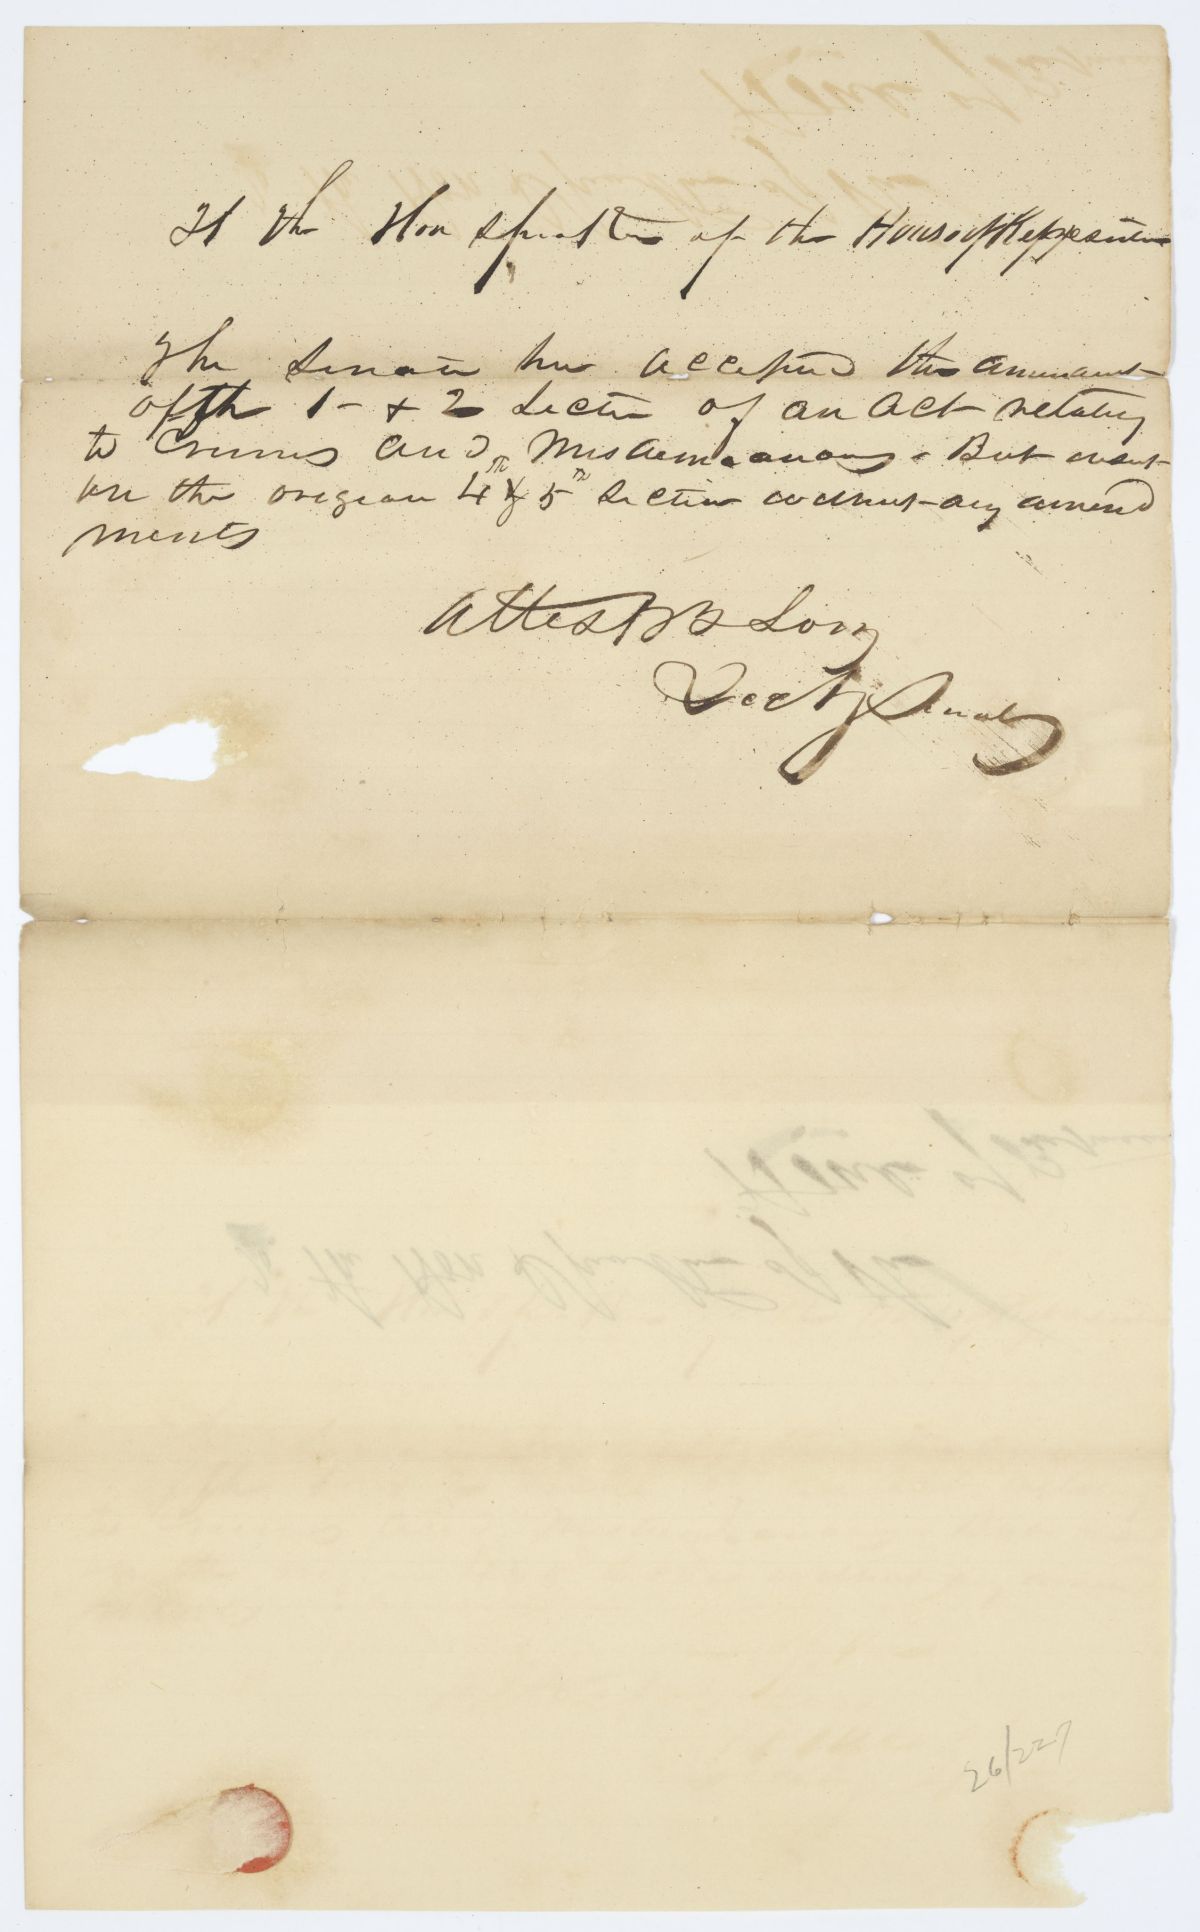 To the Hon Speaker of the House of Representa
The Senate has accepted the amendmt
of the 1 & 2 Section of an act relating
to Crimes and Misdemeanours. But insist
on the origian 4th & 5th Section without any amend
ments
Attest B B Long
Secty Senate
House of
To the Hon Speaker of the
26/227